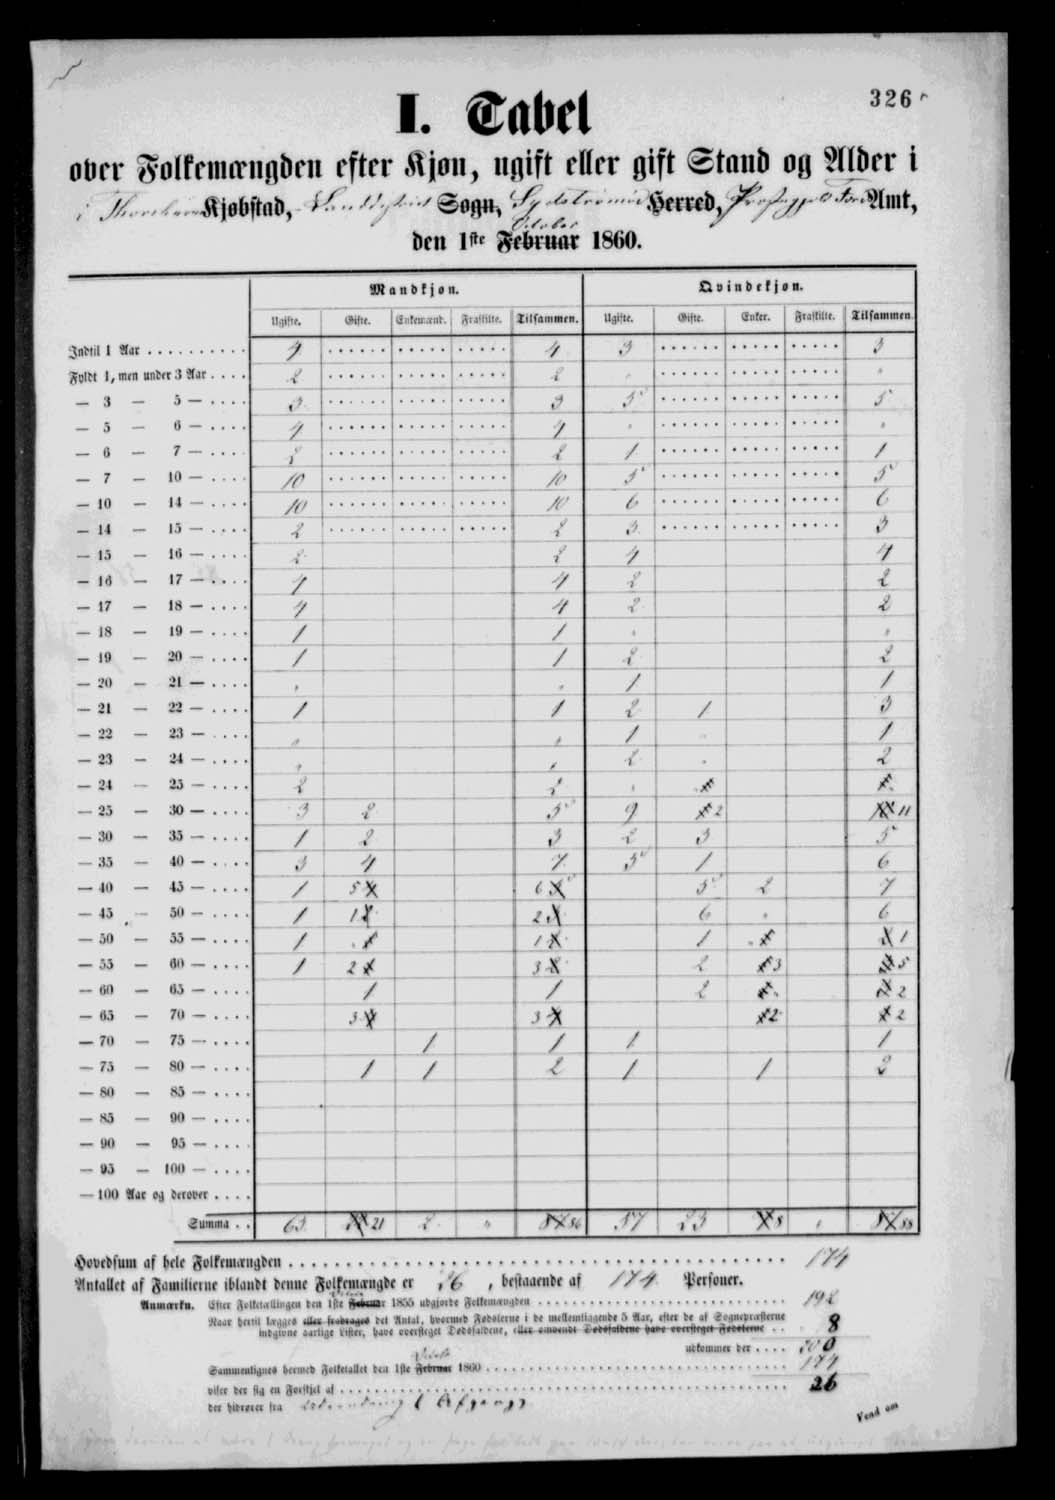 326
I. Tabel
over Folkemængden efter Kjøn, ugift eller gift Stand og Alder i
i Kjøbstad, Landdistrict Sogn, Herred, Amt,
October
den 1ste Februar 1860.
Mandkjøn. Qvindekjøn.
Ugifte. Gifte. Enkemænd. Fraskilte. Tilsammen. Ugifte. Gifte. Enker. Fraskilte. Tilsammen.
Indtil 1 Aar . . . . . . . . . . 4 4 3 3
Fyldt 1, men under 3 Aar . . . . 2 2 " "
— 3 — 5 — . . . . 3 3 5 5
— 5 — 6 — . . . . 4 4 " "
— 6 — 7 — . . . . 2 2 1 1
— 7 — 10 — . . . . 10 10 5 5
— 10 — 14 — . . . . 10 10 6 6
— 14 — 15 — . . . . 2 2 3 3
— 15 — 16 — . . . . 2 2 4 4
— 16 — 17 — . . . . 4 4 2 2
— 17 — 18 — . . . . 4 4 2 2
— 18 — 19 — . . . . 1 1 " "
— 19 — 20 — . . . . 1 1 2 2
— 20 — 21 — . . . . " " 1 1
— 21 — 22 — . . . . 1 1 2 1 3
— 22 — 23 — . . . . " " 1 " 1
— 23 — 24 — . . . . " " 2 " 2
— 24 — 25 — . . . . 2 2 "
— 25 — 30 — . . . . 3 2 5 9 2 11
— 30 — 35 — . . . . 1 2 3 2 3 5
— 35 — 40 — . . . . 3 4 7 5 1 6
— 40 — 45 — . . . . 1 5 6 5 2 7
— 45 — 50 — . . . . 1 1 2 6 " 6
— 50 — 55 — . . . . 1 " 1 1 " 1
— 55 — 60 — . . . . 1 2 3 2 3 5
— 60 — 65 — . . . . 1 1 2 " 2
— 65 — 70 — . . . . 3 3 2 2
— 70 — 75 — . . . . 1 1 1 1
— 75 — 80 — . . . . 1 1 2 1 1 2
— 80 — 85 — . . . .
— 85 — 90 — . . . .
— 90 — 95 — . . . .
— 95 — 100 — . . . .
— 100 Aar og derover . . . .
Summa . . 63 21 2 " 86 57 23 8 " 88
Hovedsum af hele Folkemængden . . . . 174
Antallet af Familierne iblandt denne Folkemængde er 26, bestaaende af 174 Personer.
Anmærkn. Efter Folketællingen den 1ste Februar 1855 udgjorde Folkemængden . . . . 192
Naar hertil lægges eller fradrages det Antal, hvormed Fødslerne i de mellemliggende 5 Aar, efter de af Sognepræsterne
indgivne aarlige Lister, have oversteget Dødsfaldene, eller omvendt Dødsfaldene have oversteget Fødslerne . . 8
udkommer der . . . . 200
Sammenlignes hermed Folketallet den 1ste Februar 1860 . . . . 174
viser der sig en Forskjel af . . . . 26
der hidrører fra
Vend om